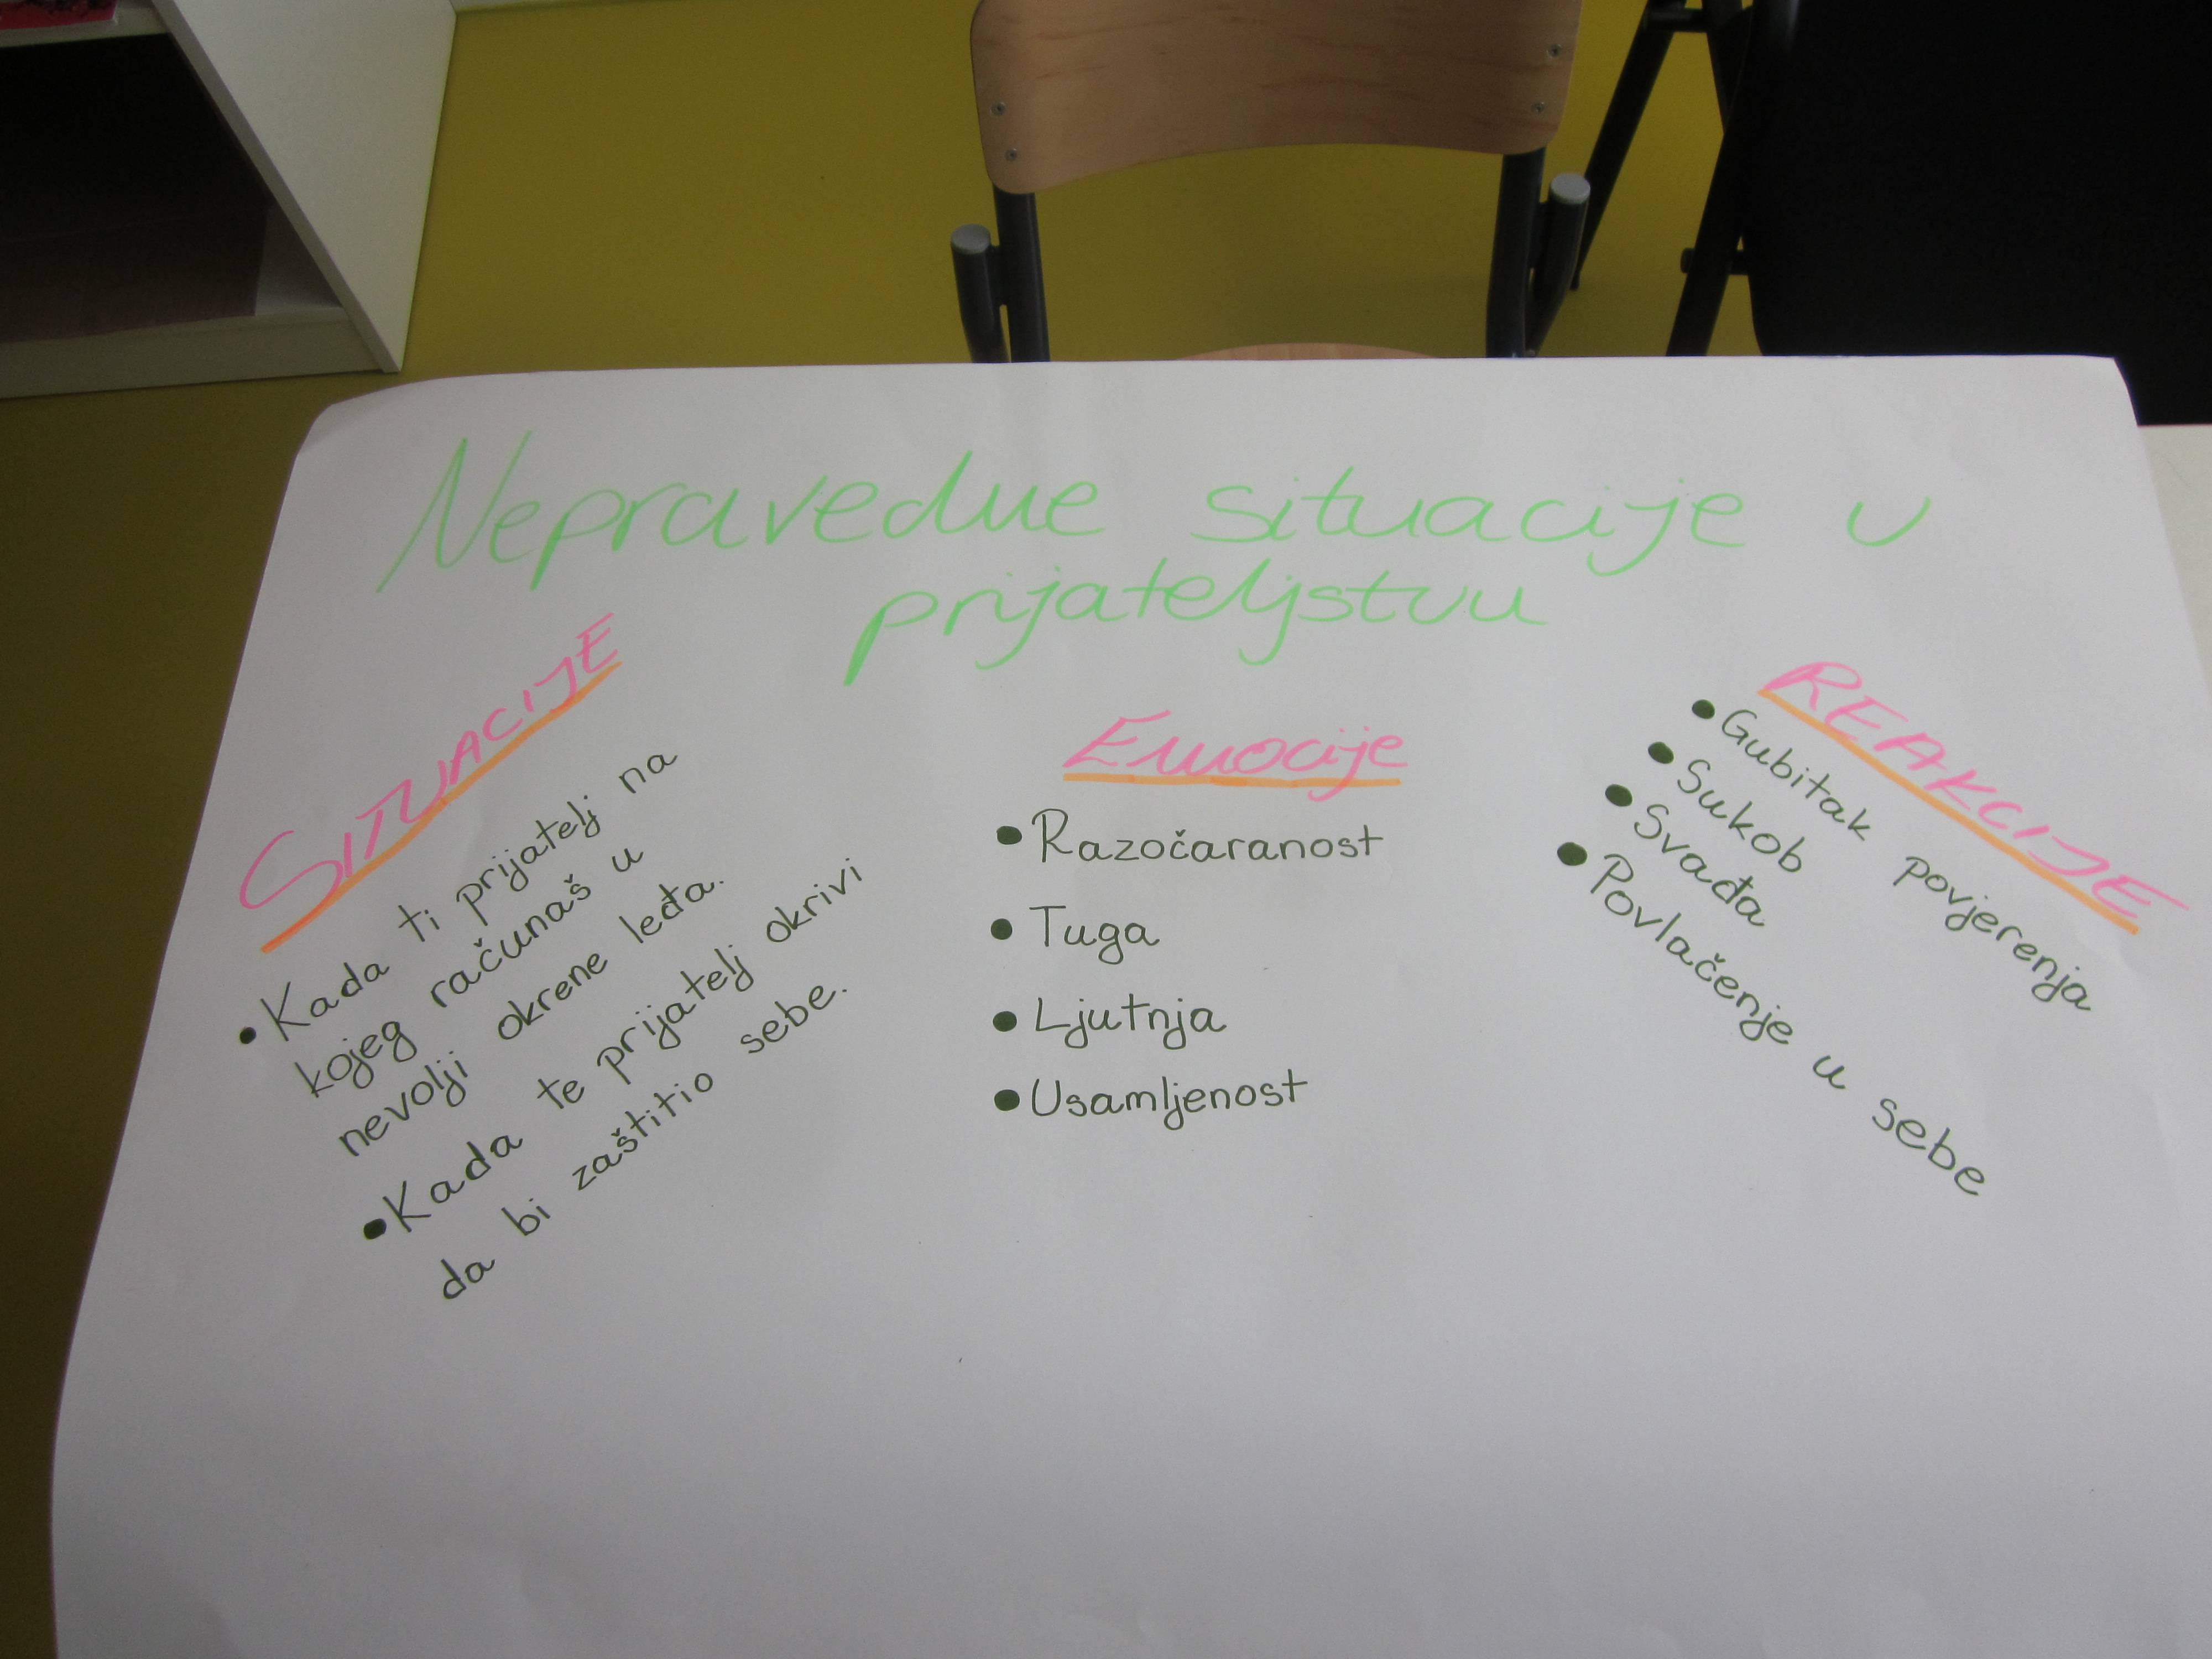 Nepravedne situacije u
prijateljstvu
SITUACIJE
• Kada ti prijatelj na
kojeg računaš u
nevolji okrene leđa.
• Kada te prijatelj okrivi
da bi zaštitio sebe.
Emocije
• Razočaranost
• Tuga
• Ljutnja
• Usamljenost
REAKCIJE
• Gubitak povjerenja
• Sukob
• Svađa
• Povlačenje u sebe